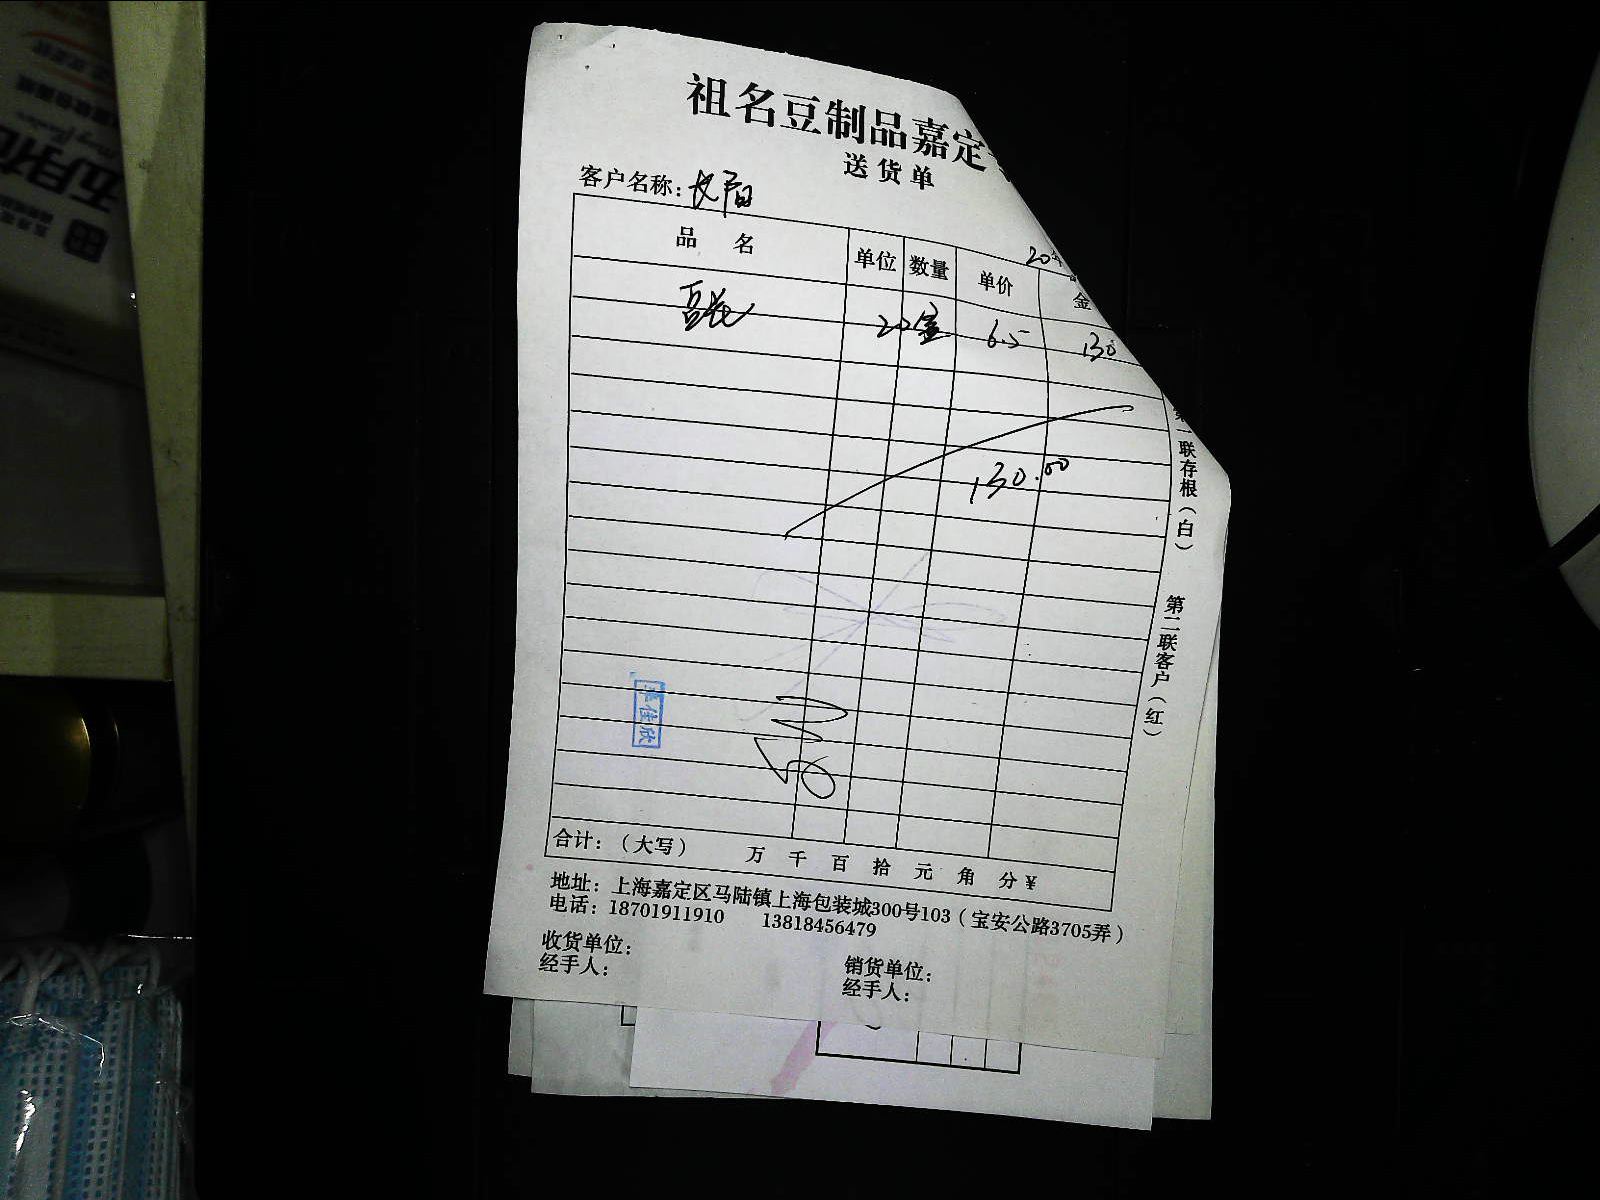 祖名豆制品嘉定
送货单
客户名称：
20年
品名 单位 数量 单价 金
20 6.5 130
130.00
第一联存根（白）
第二联客户（红）
张佳欣
合计：（大写） 万 千 百 拾 元 角 分 ¥
地址：上海嘉定区马陆镇上海包装城300号103（宝安公路3705弄）
电话：18701911910 13818456479
收货单位：
经手人：
销货单位：
经手人：
五月花